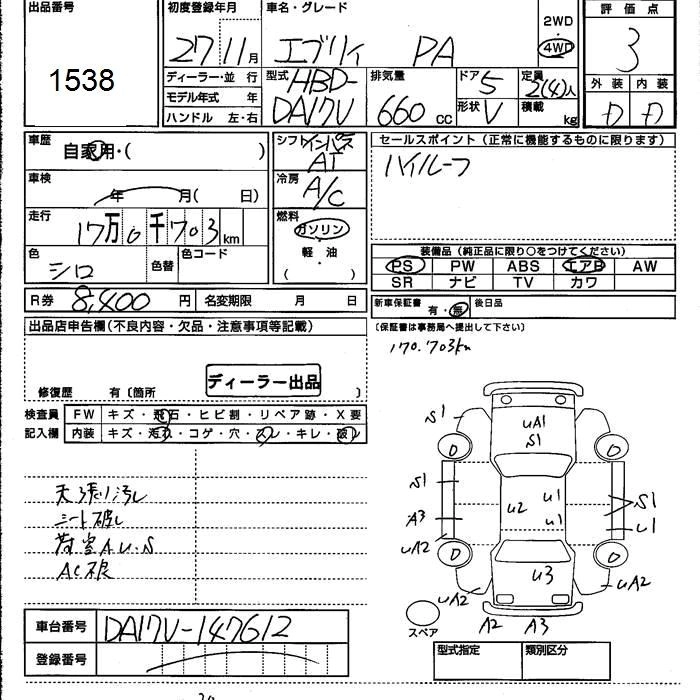 出品番号
1538
初度登録年月
27 11 月
車名・グレード
エブリイ PA
2WD
4WD
評価点
3
外装 内装
D D
ディーラー・並 行
モデル年式 年
ハンドル 左・右
型式 HBD-
DA17V
排気量
660 cc
ドア 5
形状 V
定員 2(4)人
積載 kg
車歴
自家用・( )
車検
年 月( 日)
走行
17万0千703 km
色
シロ
色替
色コード
シフト インパネ
AT
冷房
A/C
燃料
ガソリン
軽・油
( )
セールスポイント (正常に機能するものに限ります)
ハイルーフ
装備品 (純正品に限り○をつけてください)
PS PW ABS エアB AW
SR ナビ TV カワ
R券 8,400 円 名変期限 月 日
新車保証書 有・無 後日品
(保証書は事務局へ提出して下さい)
170.703km
出品店申告欄(不良内容・欠品・注意事項等記載)
ディーラー出品
修復歴 有〔箇所 〕
検査員 FW キズ・飛石・ヒビ割・リペア跡・X要
記入欄 内装 キズ・汚れ・コゲ・穴・スレ・キレ・破レ
天張り汚レ
シート破レ
荷室A.U.S
AC不良
S1
uA1
S1
D D
S1
A3
uA2
u2
u1
u1
S1
u1
D D
u3
uA2
uA2
A2 A3
スペア
車台番号 DA17V-147612
登録番号
型式指定 類別区分